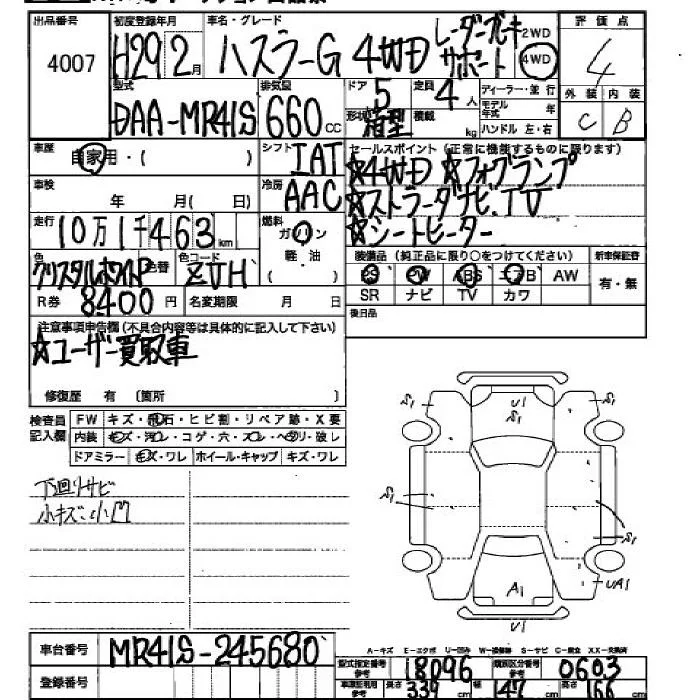 出品番号 初度登録年月 車名・グレード 評価点
4007 H29 2月 ハスラーG 4WD レーダーブレーキサポート 2WD 4WD 4
型式 排気量 ドア 定員 ディーラー・並行 外装 内装
DAA-MR41S 660cc 5 4人 モデル年式 年 C B
形状 箱型 積載 kg ハンドル 左・右
車歴 自家用・( ) シフト IAT セールスポイント (正常に機能するものに限ります)
☆4WD ☆フォグランプ
車検 年 月( 日) 冷房 AAC ☆ストラーダナビ、TV
走行 10万1千463km 燃料 ガソリン ☆シートヒーター
軽・油
色 クリスタルホワイトP 色替 色コード ZVH 装備品 (純正品に限り○をつけてください) 新車保証書
PS PW ABS エアB AW 有・無
R券 8400円 名変期限 月 日 SR ナビ TV カワ
注意事項申告欄 (不具合内容等は具体的に記入して下さい) 後日品
☆ユーザー買取車
修復歴 有 〔箇所 〕
検査員記入欄 FW キズ・飛石・ヒビ割・リペア跡・X要
内装 キズ・汚レ・コゲ・穴・スレ・ヘタリ・破レ
ドアミラー キズ・ワレ ホイール・キャップ キズ・ワレ
下廻りサビ
小キズ、小凹
S1 U1 S1 S1
S1 S1
A1 UA1
U1
車台番号 MR41S-245680
A-キズ E-エクボ U-凹み W-補修跡 S-サビ C-腐食 XX-交換済
登録番号 型式指定番号 参考 18096 類別区分番号 参考 0603
車庫証明用 参考 長さ 339cm 幅 147cm 高さ 166cm